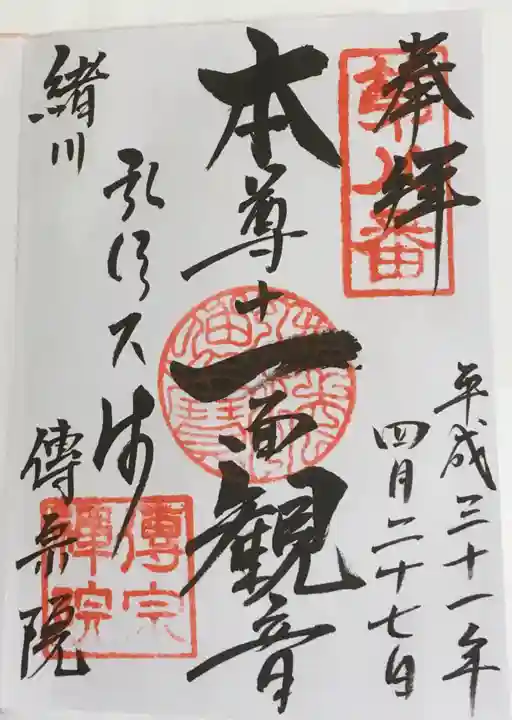 奉拝
第八番
平成三十一年
四月二十七日
本尊十一面観音
弘法大師
緒川
傳宗院
傳宗
禅院